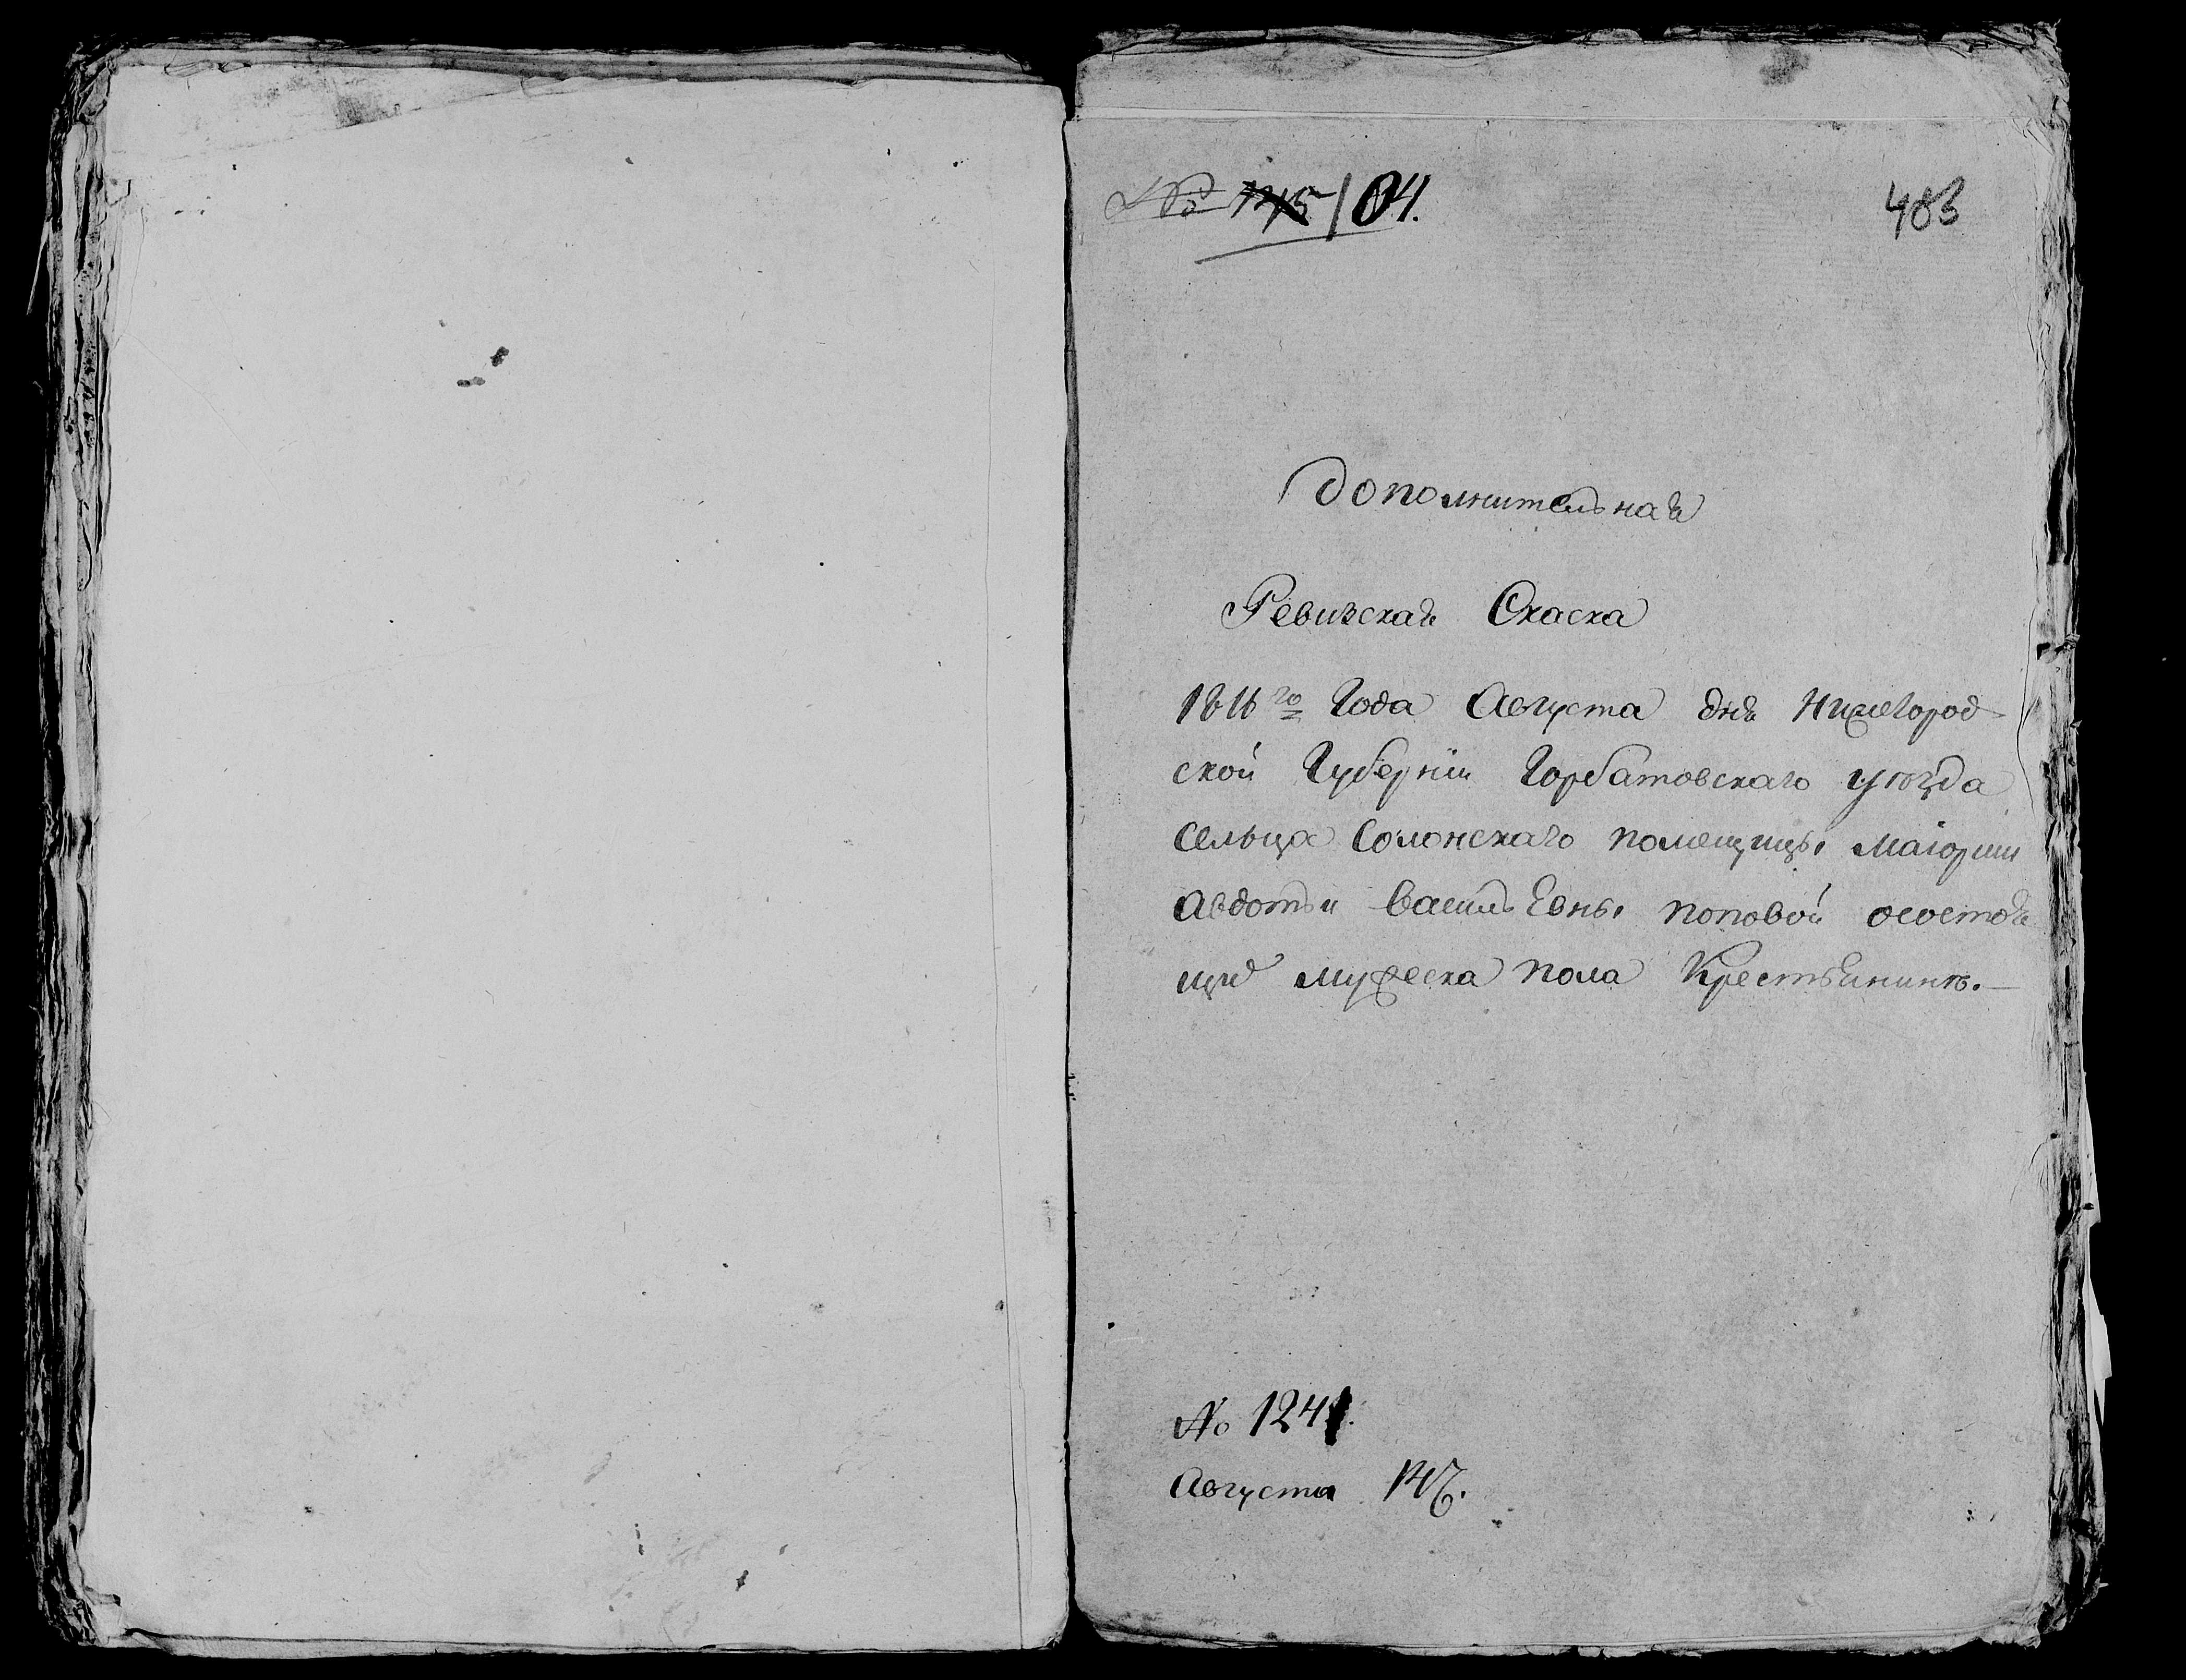 № 145 104.
483
Дополнителная
Ревизская Скаска
1816го Года Августа дня Нижегород
ской Губернїи Горбатовскаго уѣзда
сельца Солонскаго помещицы маіорши
Авдотьи Васильевны Поповой осостоя
щем мужеска пола Крестьянинѣ.
№ 1241.
Августа 14